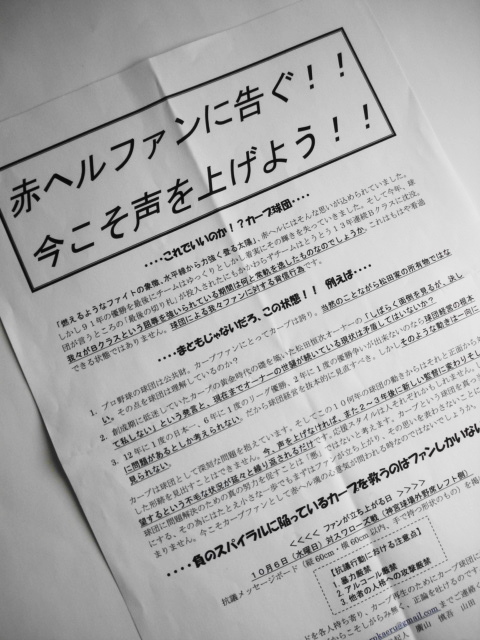 赤ヘルファンに告ぐ！！
今こそ声を上げよう！！
････これでいいのか！？カープ球団････
「燃えるようなファイトの象徴、水平線から力強く登る太陽」、赤ヘルにはそんな思いが込められていました。
しかし９１年の優勝を最後にチームはゆっくりとしかし着実にその輝きを失っていきました。そして今年、球
団が言うところの「最後の切り札」が投入されたにもかかわらずチームはとうとう１３年連続Ｂクラスに沈没。
我々がＢクラスという屈辱を強いられている期間は何と常軌を逸したものなのでしょうか。これはもはや看過
できる状態ではありません。球団による我々ファンに対する背信行為です。
････まともじゃないだろ、この状態！！ 例えば････
1. プロ野球の球団は公共財、カープファンにとってカープは誇り。当然のことながら松田家の所有物ではな
い。その点を球団は理解しているのか？
2. 創成期に低迷していたカープの黄金時代の礎を築いた松田恒次オーナーの「しばらく面倒を見るが、決し
て私しない」という発言と、現在までオーナーの世襲が続いている現状は矛盾してはいないか？
3. １２年に１度の日本一、６年に１度のリーグ優勝、２年に１度の優勝争いが出来ないのなら球団経営の根本
に問題があるとしか考えられない。だから球団経営を抜本的に見直すべき。しかしそのような動きは一向に
見られない。
カープは球団として深刻な問題を抱えています。そしてこの１０年の球団の動きからはそれと正面から
した形跡を見出すことはできません。今、声を上げなければ、また２〜３年後に新しい監督に変わりそし
望するという不毛な状況が延々と繰り返されるだけです。応援スタイルは人それぞれかもしれません。
球団に問題解決のための真の努力を促すことは「悪」ではないと考えます。カープという球団を真っ
にする、その為にはたとえ小さな一歩でもまずはファンが立ち上がり、その思いを表わさないことに
まりません。今こそカープファンとして赤ヘル魂の心意気が問われる時なのではないでしょうか。
････負のスパイラルに陥っているカープを救うのはファンしかいない
<<<< ファンが立ち上がる日 >>>>
１０月６日（水曜日）対スワローズ戦（神宮球場外野席レフト側）
抗議メッセージボード（縦60cm・横60cm以内、手で持つ形状のもの）を掲
【抗議行動における注意点】
1. 暴力厳禁
2. アルコール厳禁
3. 他者の人格への攻撃厳禁
ドを各人持ち寄り、カープ再生のために球団に
こそしがらみ無く、正論を吐けるのです
kaeru@gmail.com までご連絡く
廣山 慎吾 山田